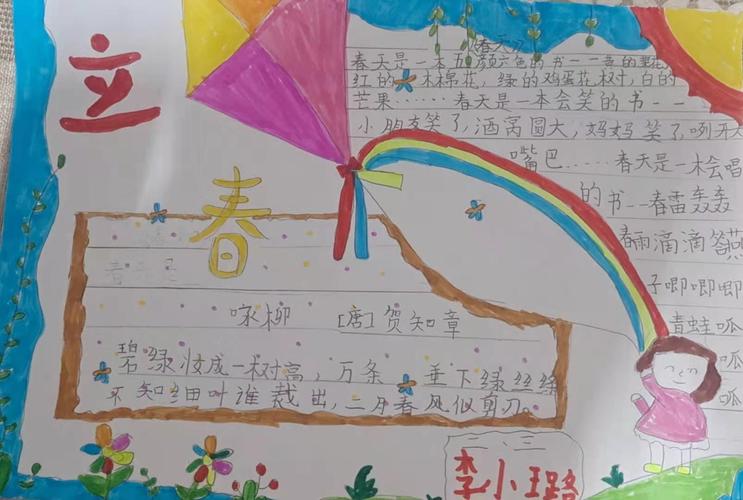 立
春
春天
春天是一本五颜六色的书--
红的木棉花，绿的鸡蛋花树，白的
芒果……春天是一本会笑的书--
小朋友笑了，酒窝圆大，妈妈笑了，咧开大
嘴巴……春天是一本会唱
的书--春雷轰轰
春雨滴滴答
燕
子唧唧唧
青蛙呱
呱
呱
咏柳 [唐]贺知章
碧绿妆成一树高，万条垂下绿丝绦
不知细叶谁裁出，二月春风似剪刀。
二、三
李小璐